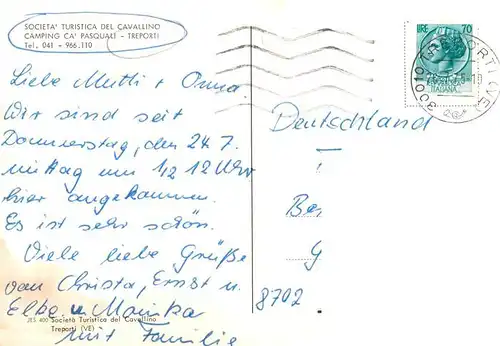 SOCIETA' TURISTICA DEL CAVALLINO
CAMPING CA' PASQUALI - TREPORTI
Tel. 041 - 966.110
LIRE 70
ITALIANA
30010
Liebe Mutti + Omma.
Wir sind seit
Donnerstag, den 24.7.
mittag um 1/2 12 Uhr
hier angekommen.
Es ist sehr schön.
Viele liebe Grüße
von Christa, Ernst u.
Elke u Monika
mit Familie
Deutschland
Ber
G
8702
JES 400 Società Turistica del Cavallino
Treporti (VE)